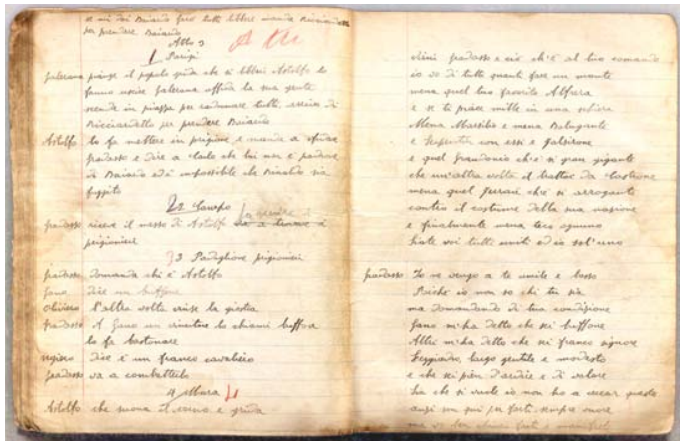 e di Baiardo però tutti liberi manda Ricciardetto
per prendere Baiardo
Atto 3
1 Parigi
galerana piange il popolo grida che si liberi Astolfo lo
fanno uscire galerana affida la sua gente
scende in piazza per radunare tutti, arriva di
Ricciardetto per prendere Baiardo
Astolfo lo fa mettere in prigione e manda a sfidare
gradasso e dire a Carlo che lui non è padrone
di Baiardo ed è impossibile che Rinaldo sia
fuggito
2 Campo
gradasso riceve il messo di Astolfo
prigioniere
3 Padiglione prigionieri
gradasso domanda chi è Astolfo
gano dice un buffone
Oliviero l'altra volta vinse la giostra
gradasso A Gano un
lo fa bastonare
dice è un franco cavaliero
gradasso va a combatterlo
4 Mura
Astolfo che suona il corno e grida
gradasso e ciò ch'è al tuo comando
io so di tutti quanti fare un monte
mena quel tuo Alfrera
e se ti piace mille in una schiera
Mena Marsilio e mena Balugante
e Serpentin con essi e Falsirone
e quel Grandonio ch'è sì gran gigante
che un'altra volta il trattor da
mena quel Ferraù ch'è sì arrogante
contro il costume della sua nazione
e finalmente mena teco ognuno
siate voi tutti uniti ed io sol'uno
gradasso Io ne vengo a te umile e basso
Poiché io non so chi tu sia
ma domandando di tua condizione
Gano m'ha detto che sei buffone
Altri m'ha detto che sei franco signore
leggiadro, largo gentile e modesto
e che sei pien d'ardire e di valore
Sia che si vuole io non ho a cercar questo
anzi son qui per farti sempre onore